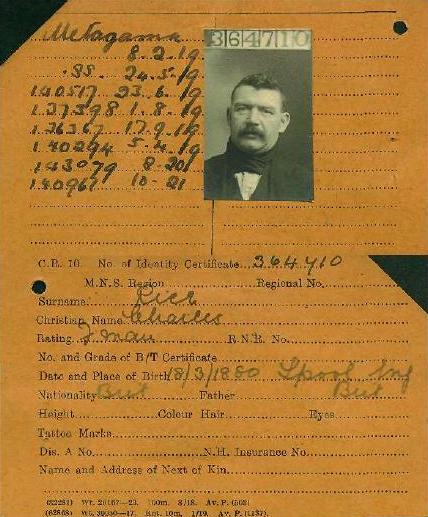 Metagama
364710
8.2.19
.SS. 24.5.19
140517 23.6.19
137398 1.8.19
136367 17.9.19
140294 5-4.19
143079 8-20
140967 10-21
C.R. 10. No. of Identity Certificate 364710
M.N.S. Region Regional No.
Surname Rice
Christian Name Charles
Rating Fman R.N.R. No.
No. and Grade of B/T Certificate
Date and Place of Birth 18/3/1880 Lpool Eng
Nationality Brit Father Brit
Height Colour Hair Eyes
Tattoo Marks
Dis. A No. N.H. Insurance No.
Name and Address of Next of Kin
Wt. 20167—23. 100m. 8/18. Av. P. (503)
Wt. 39090—17. 10m. 1/19. Av. P. (1137).